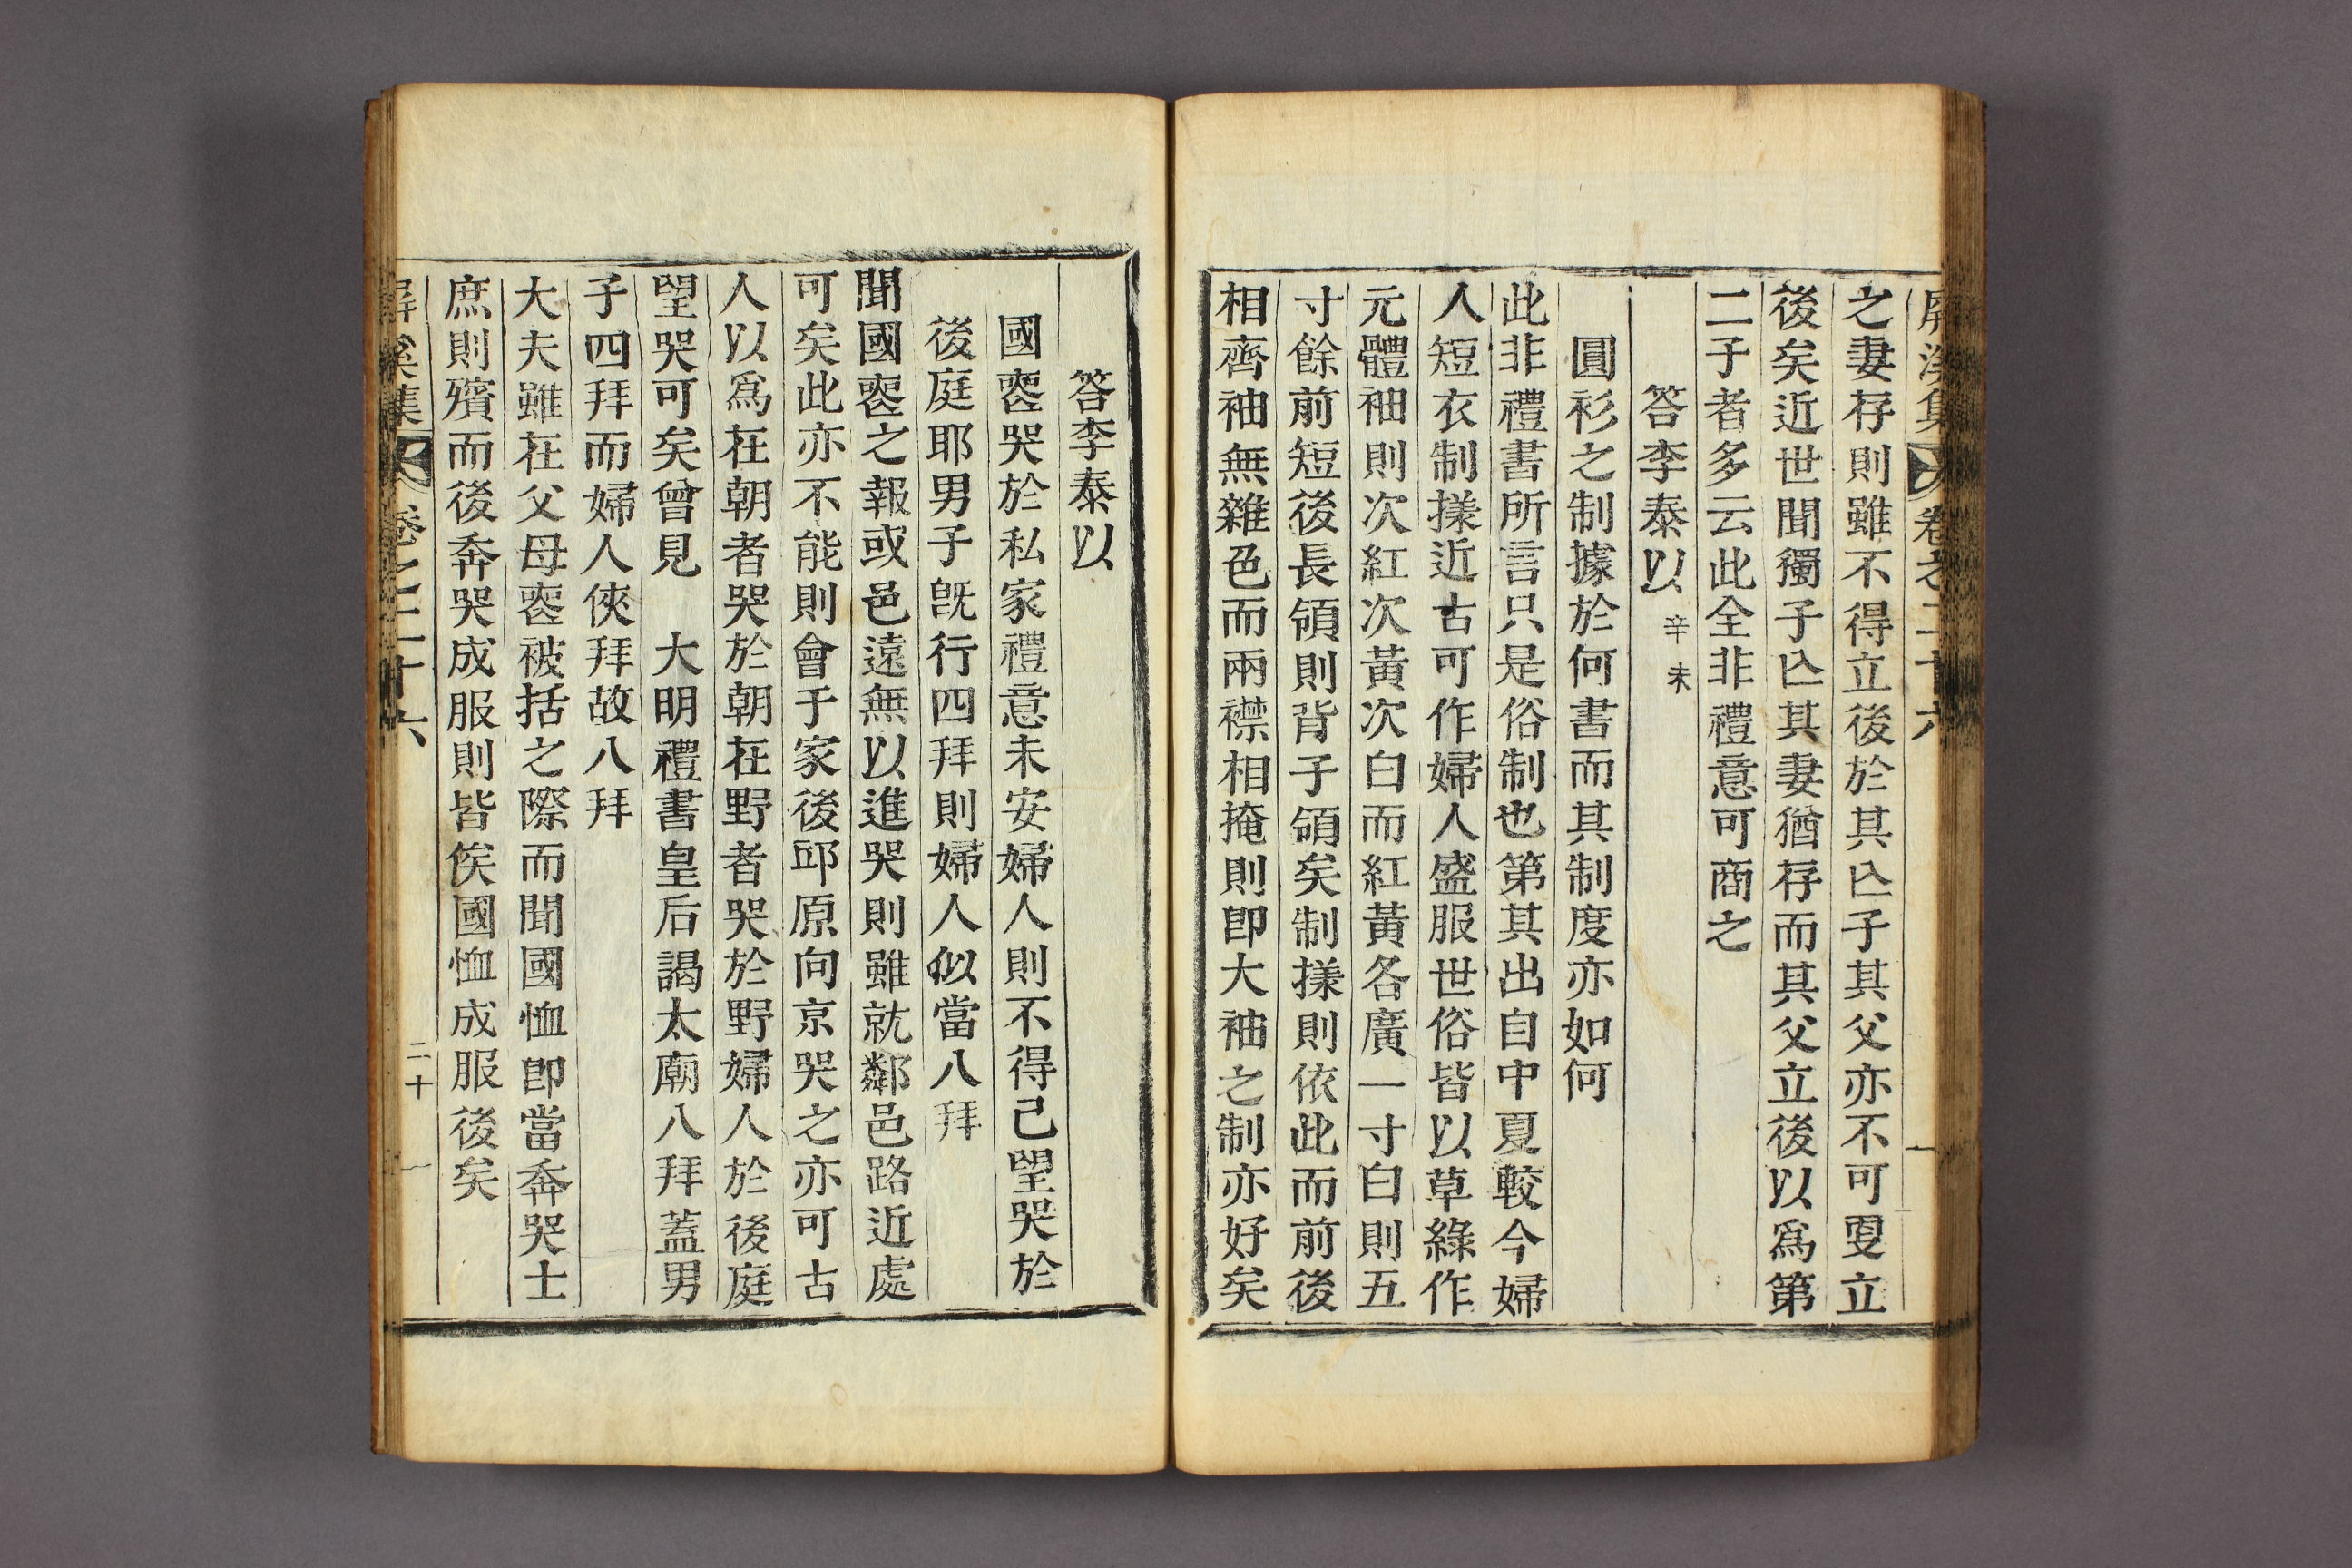 屛溪集 卷之二十六
之妻存則雖不得立後於其亾子其父亦不可更立
後矣近世聞獨子亾其妻猶存而其父立後以爲第
二子者多云此全非禮意可商之
答李泰以 辛未
圓衫之制據於何書而其制度亦如何
此非禮書所言只是俗制也第其出自中夏較今婦
人短衣制㨾近古可作婦人盛服世俗皆以草綠作
元體袖則次紅次黃次白而紅黃各廣一寸白則五
寸餘前短後長領則背子領矣制㨾則依此而前後
相齊袖無雜色而兩襟相掩則卽大袖之制亦好矣
答李泰以
國喪哭於私家禮意未安婦人則不得已望哭於
後庭耶男子旣行四拜則婦人似當八拜
聞國喪之報或邑遠無以進哭則雖就鄰邑路近處
可矣此亦不能則會于家後邱原向京哭之亦可古
人以爲在朝者哭於朝在野者哭於野婦人於後庭
望哭可矣曾見 大明禮書皇后謁太廟八拜蓋男
子四拜而婦人俠拜故八拜
大夫雖在父母喪被括之際而聞國恤卽當奔哭士
庶則殯而後奔哭成服則皆俟國恤成服後矣
屛溪集 卷之二十六 二十